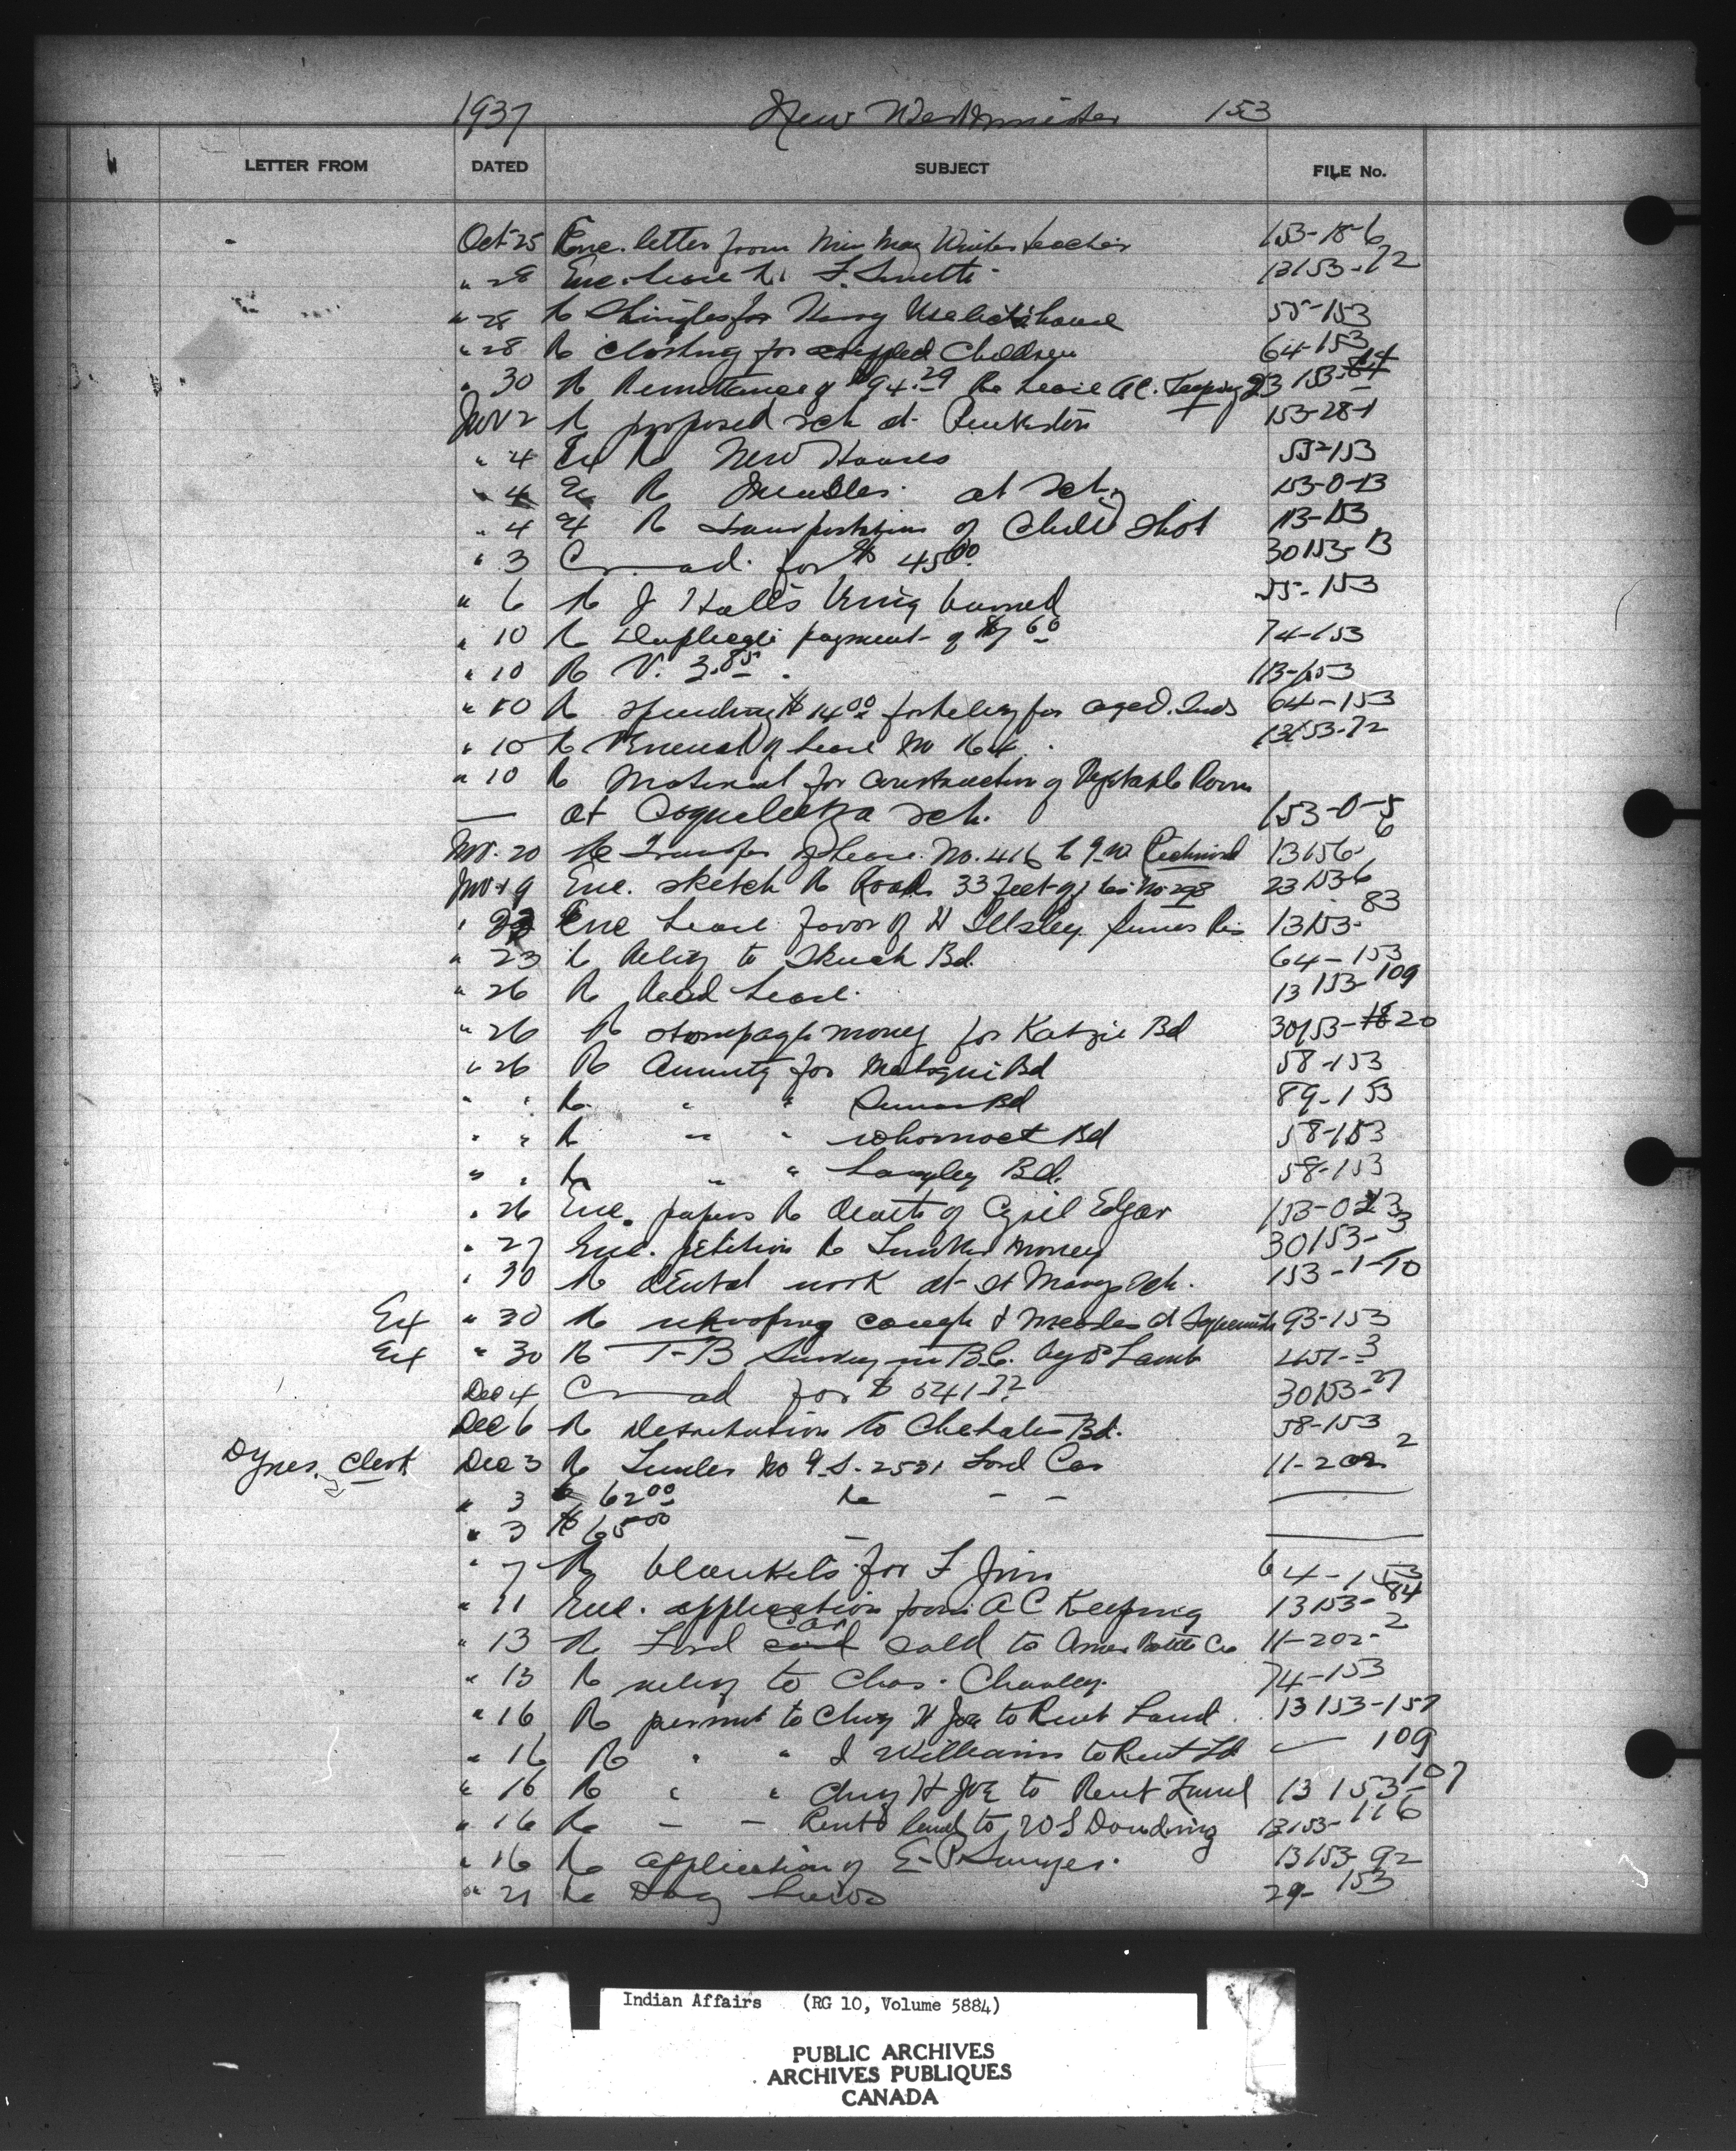 1937 New Westminster 153
LETTER FROM DATED SUBJECT FILE No.
Oct 25 Enc. letter from Miss May teacher 153-18-6
" 28 Enc. lease 13153-72
" 28 R Shingles for house 55-153
" 28 R clothing for crippled Children 64-153
" 30 R Remittance of $94.29 Re Lease A.C. Keeping 23153-84
Nov 2 R proposed sch at Penticton 153-28-1
" 4 Ex R New Houses 55-153
" 4 Ex R at Sch 153-0-13
" 4 Ex R transportation of Shot 113-153
" 3 C ad. for $ 45.00 30153-13
" 6 R J Hall's being burned 55-153
" 10 R Duplicate payment of $7.60 74-153
" 10 R V. 3.85. 113-153
" 10 R spending $14.00 for relief for aged Inds 64-153
" 10 R Renewal of Lease No 164. 13153-72
" 10 R Material for construction of Vegetable Room
— at Coqualeetza sch. 153-0-5
Nov. 20 Re Transfer of Lease No. 416 to 13156-6
Nov. 19 Enc. sketch R Road 33 feet 23153-6
" 23 Enc Lease favor of H Illsley 13153-83
" 23 R Relief to Bd. 64-153
" 26 R Read Lease. 13153-109
" 26 R stumpage money for Katzie Bd 30153-18 20
" 26 R Annuity for Matsqui Bd 58-153
" " R " " Sumas Bd 89-153
" " R " " Whonnock Bd 58-153
" " R " " Langley Bd. 58-153
" 26 Enc. papers R death of Cyril Edgar 153-0-23
" 27 Enc. petition R Timber money 30153-3
" 30 R dental work at St Marys Sch. 153-1-10
Ex " 30 R whooping cough & measles at Squamish 93-153
Ex " 30 R T-B Survey in B.C. by Dr Lamb 3
Dec 4 C ad for $ 541.72 30153-27
Dec 6 R Distribution to Chehalis Bd. 58-153
Dynes, Clerk Dec 3 R Tender No 9-S-2531 Ford Car 11-202-2
" 3 $ 62.00 Re — —
" 3 $ 65.00 —
" 7 R blankets for F Jim 64-153
" 11 Enc. application from A C Keeping 13153-84
" 13 R Ford Car sold to Bottle Co 11-202-2
" 13 R relief to Chas. Charley. 74-153
" 16 R permit to Chuy H Joe to Rent Land. 13153-157
" 16 R " " Williams to Rent Ld. 109
" 16 R " " Chuy H Joe to Rent Land 13153-107
" 16 R — — Rent land to W S Douding 13153-116
" 16 R application of E. P. 13153-92
" 21 Re Dog 29-153
Indian Affairs (RG 10, Volume 5884)
PUBLIC ARCHIVES
ARCHIVES PUBLIQUES
CANADA